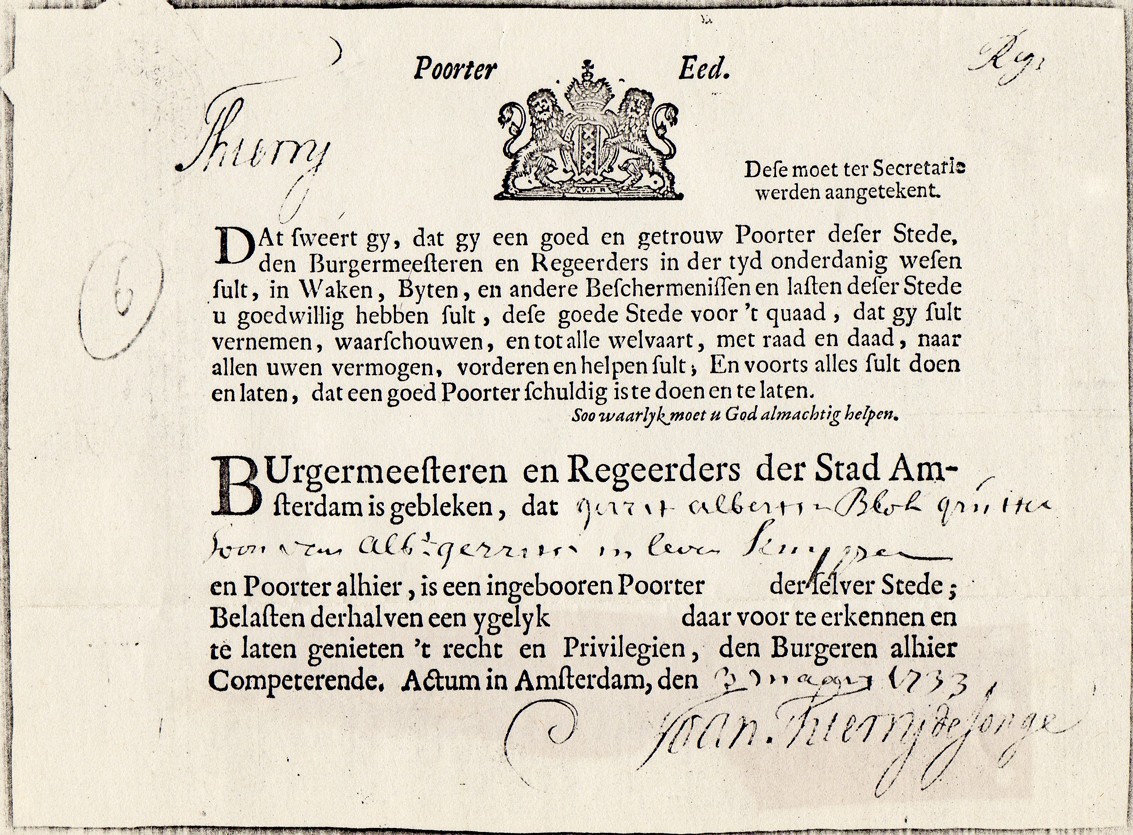 Poorter Eed.
Regr
Thierry
Deſe moet ter Secretarie
werden aangetekent.
6
V.H.R
DAt ſweert gy, dat gy een goed en getrouw Poorter deſer Stede,
den Burgermeeſteren en Regeerders in der tyd onderdanig weſen
ſult, in Waken, Byten, en andere Beſchermeniſſen en laſten deſer Stede
u goedwillig hebben ſult, deſe goede Stede voor 't quaad, dat gy ſult
vernemen, waarſchouwen, en tot alle welvaart, met raad en daad, naar
allen uwen vermogen, vorderen en helpen ſult; En voorts alles ſult doen
en laten, dat een goed Poorter ſchuldig is te doen en te laten.
Soo waarlyk moet u God almachtig helpen.
BUrgermeeſteren en Regeerders der Stad Am-
ſterdam is gebleken, dat gerrit albertsen Blok
soon van Alb:t gerritsen in leven
en Poorter alhier, is een ingebooren Poorter der ſelver Stede;
Belaſten derhalven een ygelyk daar voor te erkennen en
te laten genieten 't recht en Privilegien, den Burgeren alhier
Competerende. Actum in Amſterdam, den 1733
Joan. Thierry de Jonge